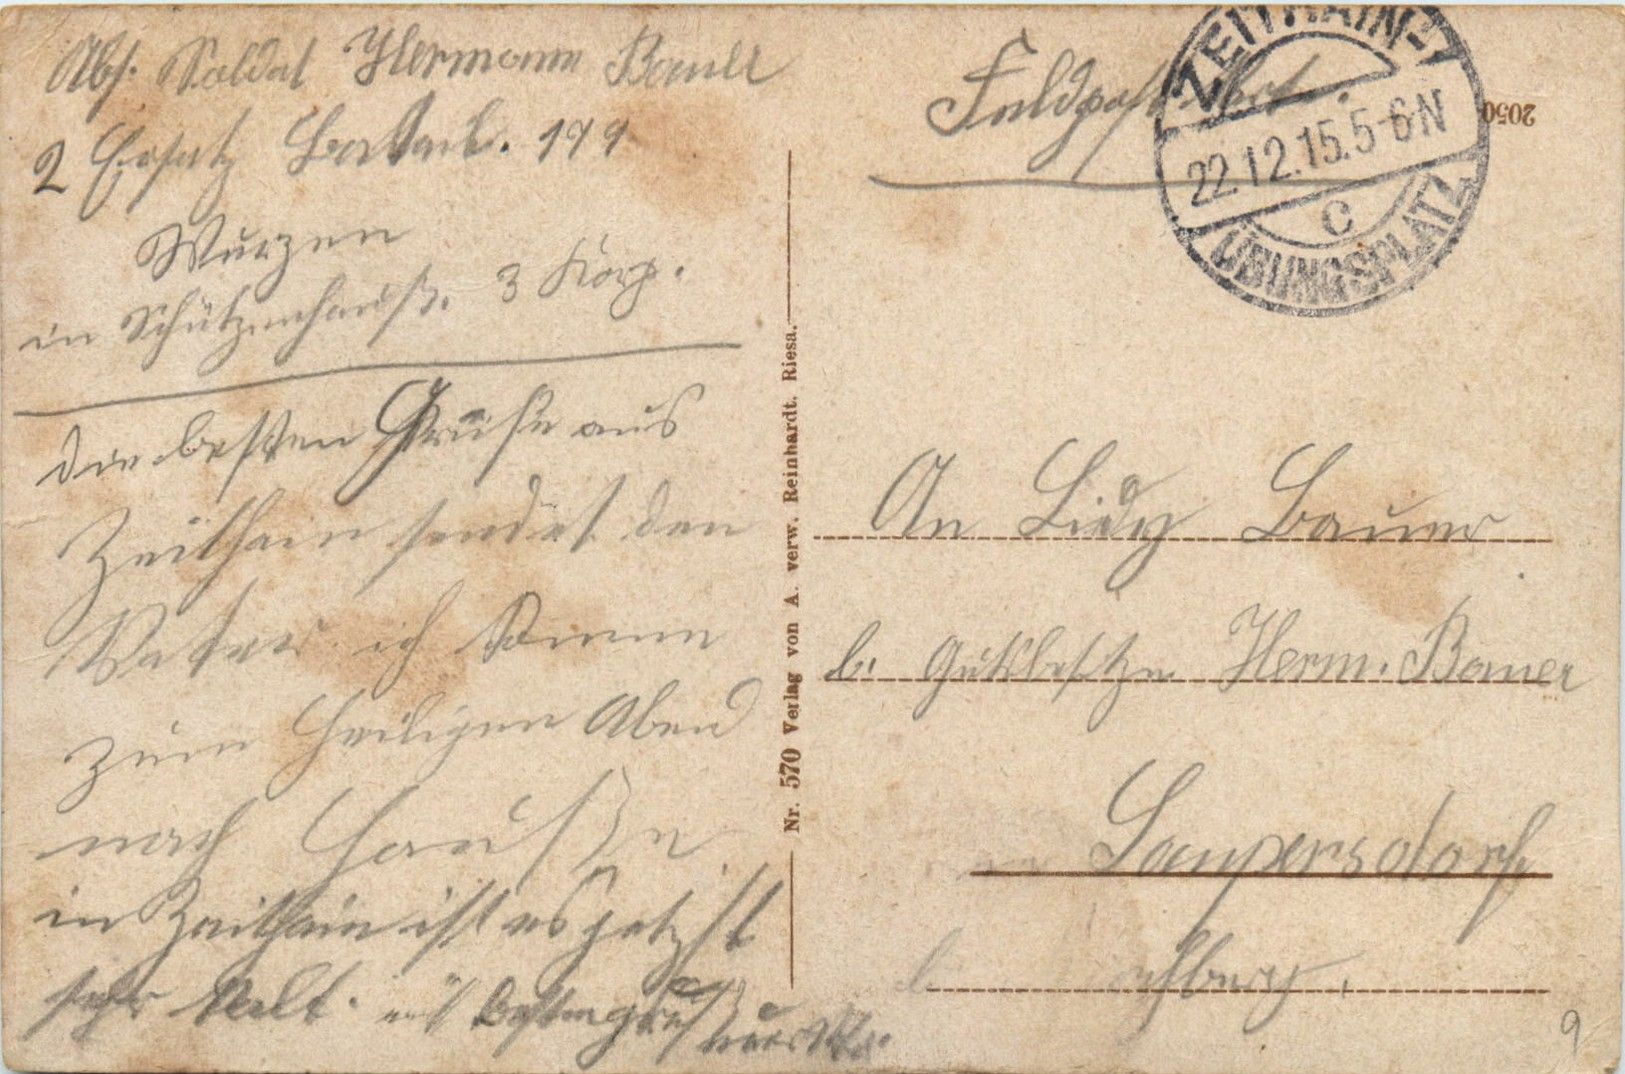 Abs. Soldat Hermann Bauer
2 Ersatz Batail.
Wurzen
in Schützenhauß. 3 Korp.
die besten Grüße aus
Zeithain sendet den
Vater ich komme
zum Heiligen Abend
nach Hauße
in Zeithain ist es jetzt
sehr kalt. mit besten
Nr. 570 Verlag von A. verw. Reinhardt. Riesa.
Feldpost
ZEITHAIN
22.12.15.5-6N
C
ÜBUNGSPLATZ
2050
An Lidy Bauer
b. Gutsbesitzer Herm. Bauer
Lampersdorf
b.
9